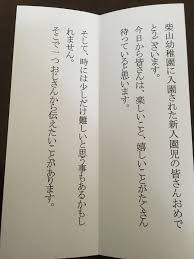 柴山幼稚園に入園された新入園児の皆さんおめで
とうございます。
今日から皆さんは、楽しいこと、嬉しいことがたくさん
待っていると思います。
そして、時には少しだけ難しいと思う事もあるかもし
れません。
そこで一つおじさんから伝えたいことがあります。